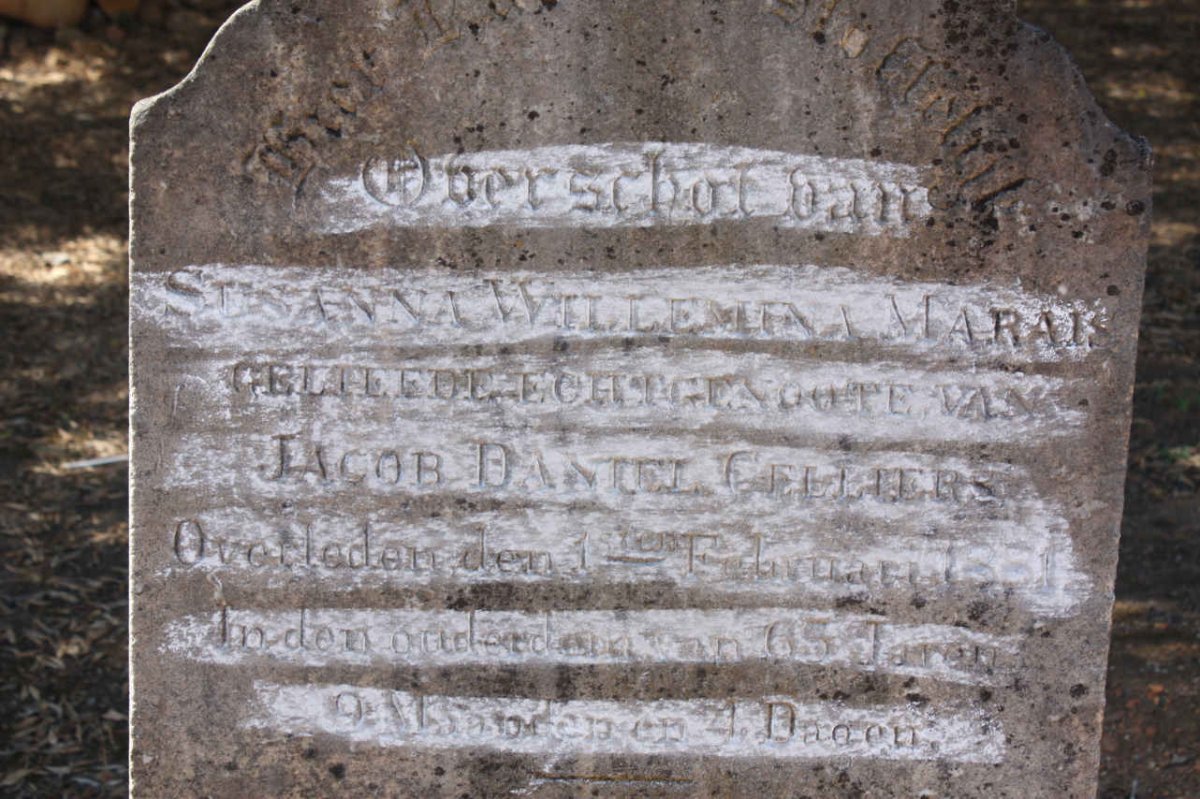 Overschot van
SUSANNA WILLEMINA MARAIS
GELIEFDE ECHTGENOOTE VAN
JACOB DANIEL CELLIERS
Overleden den 1sten Februari 1881
In den ouderdom van 65 Jaren
9 Maanden en 4 Dagen